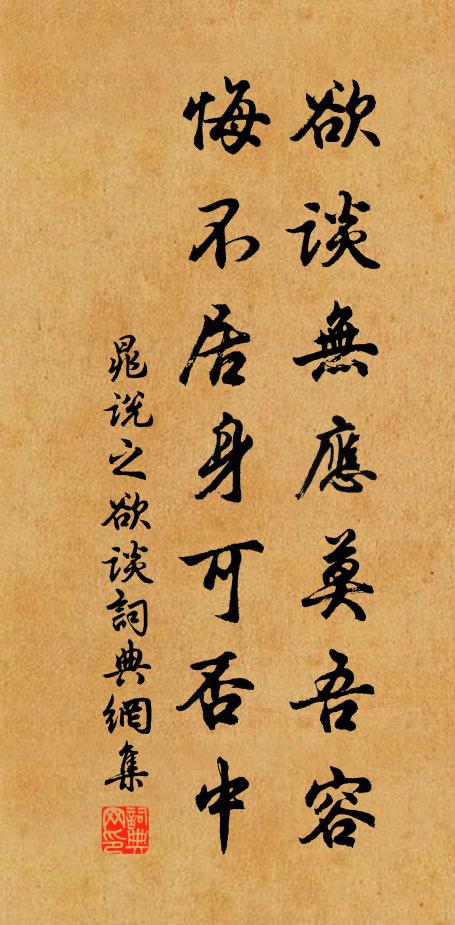 欲談無應莫吾容
悔不居身可否中
晁說之欲談詞典網集
詞典网印